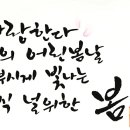 사랑한다
의 어린봄날
부시게 빛나는
직 널위한
봄